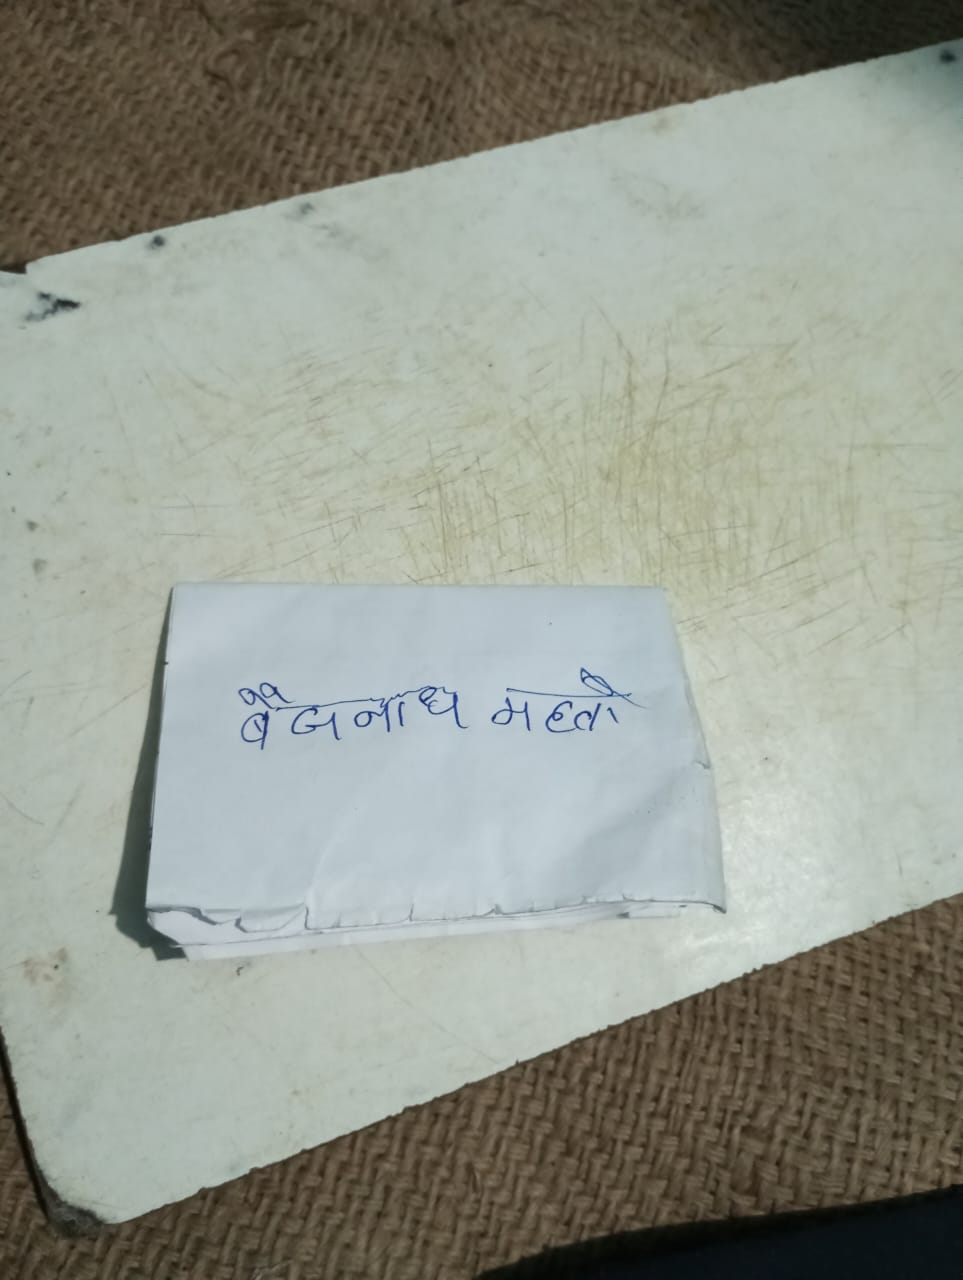 बैजनाथ महतो